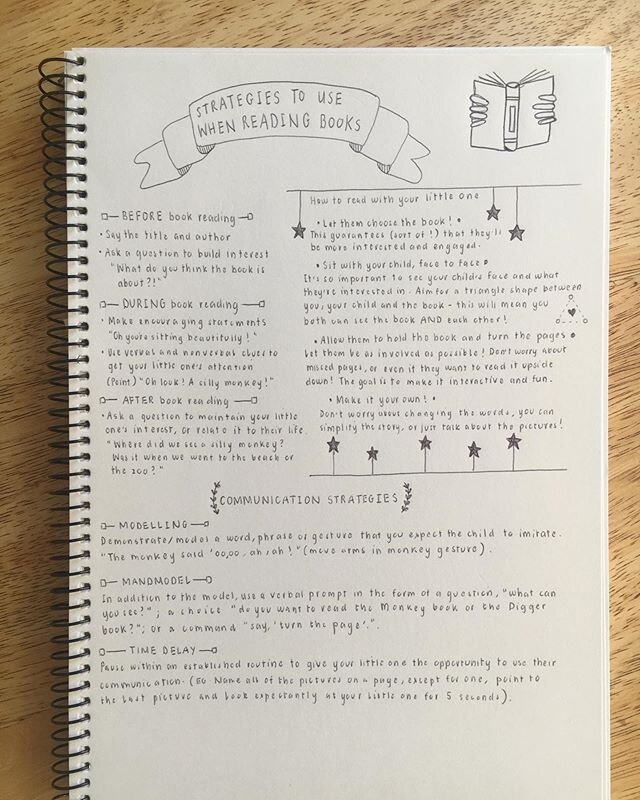 STRATEGIES TO USE
WHEN READING BOOKS
BEFORE book reading
• Say the title and author
• Ask a question to build interest
"What do you think the book is
about?!"
DURING book reading
• Make encouraging statements
"Oh you're sitting beautifully!"
• Use verbal and nonverbal clues to
get your little one's attention
(Point) "Oh look! A silly monkey!"
AFTER book reading
• Ask a question to maintain your little
one's interest, or relate it to their life.
"Where did we see a silly monkey?
Was it when we went to the beach or
the zoo?"
How to read with your little one
• Let them choose the book! •
This guarantees (sort of!) that they'll
be more interested and engaged.
• Sit with your child, face to face •
It's so important to see your child's face and what
they're interested in. Aim for a triangle shape between
you, your child and the book - this will mean you
both can see the book AND each other!
• Allow them to hold the book and turn the pages •
Let them be as involved as possible! Don't worry about
missed pages, or even if they want to read it upside
down! The goal is to make it interactive and fun.
• Make it your own! •
Don't worry about changing the words, you can
simplify the story, or just talk about the pictures!
COMMUNICATION STRATEGIES
MODELLING
Demonstrate/model a word, phrase or gesture that you expect the child to imitate.
"The monkey said 'oo,oo, ah, ah!" (move arms in monkey gesture).
MANDMODEL
In addition to the model, use a verbal prompt in the form of a question, "what can
you see?"; a choice "do you want to read the Monkey book or the Digger
book?"; or a command "say, 'turn the page'.".
TIME DELAY
Pause within an established routine to give your little one the opportunity to use their
communication. (EG Name all of the pictures on a page, except for one, point to
the last picture and look expectantly at your little one for 5 seconds).